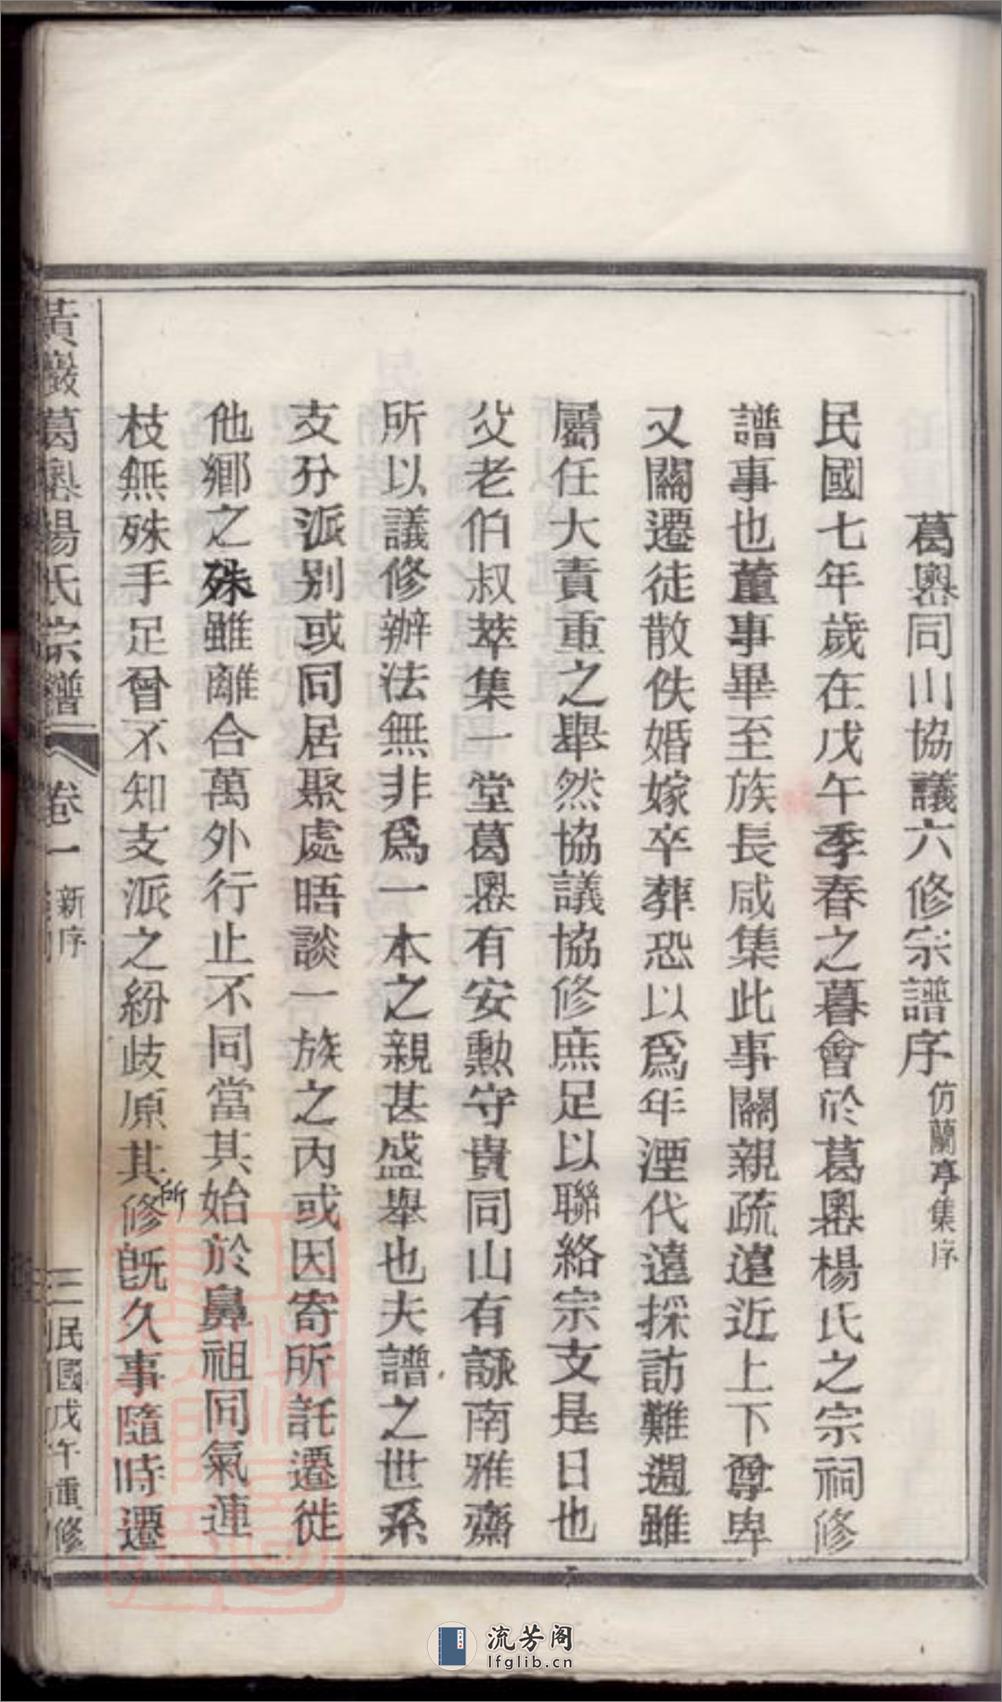 葛嶴同山協議六修宗譜序 仿蘭亭集序
民國七年歲在戊午季春之暮會於葛嶴楊氏之宗祠修
譜事也董事畢至族長咸集此事關親疏遠近上下尊卑
又關遷徒散佚婚嫁卒葬恐以爲年湮代遠採訪難週雖
屬任大責重之舉然協議協修庶足以聯絡宗支是日也
父老伯叔萃集一堂葛嶴有安勳守貴同山有詠南雅齋
所以議修辦法無非爲一本之親甚盛舉也夫譜之世系
支分派别或同居聚處晤談一族之內或因寄所託遷徙
他鄉之殊雖離合萬外行止不同當其始於鼻祖同氣連
枝無殊手足曾不知支派之紛歧原其所修旣久事隨時遷
黃巖葛嶴楊氏宗譜 卷一 新序 三 民國戊午重修
流芳阁
lfglib.cn